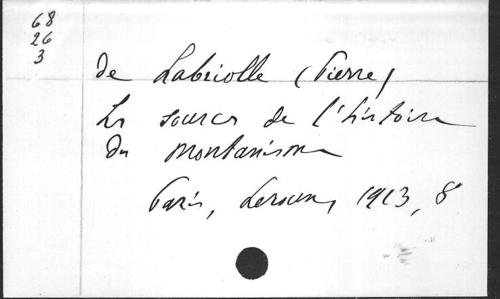 68
26
3
de Labriolle (Pierre)
Les sources de l'histoire
du montanisme
Paris, Leroux, 1913, 8°